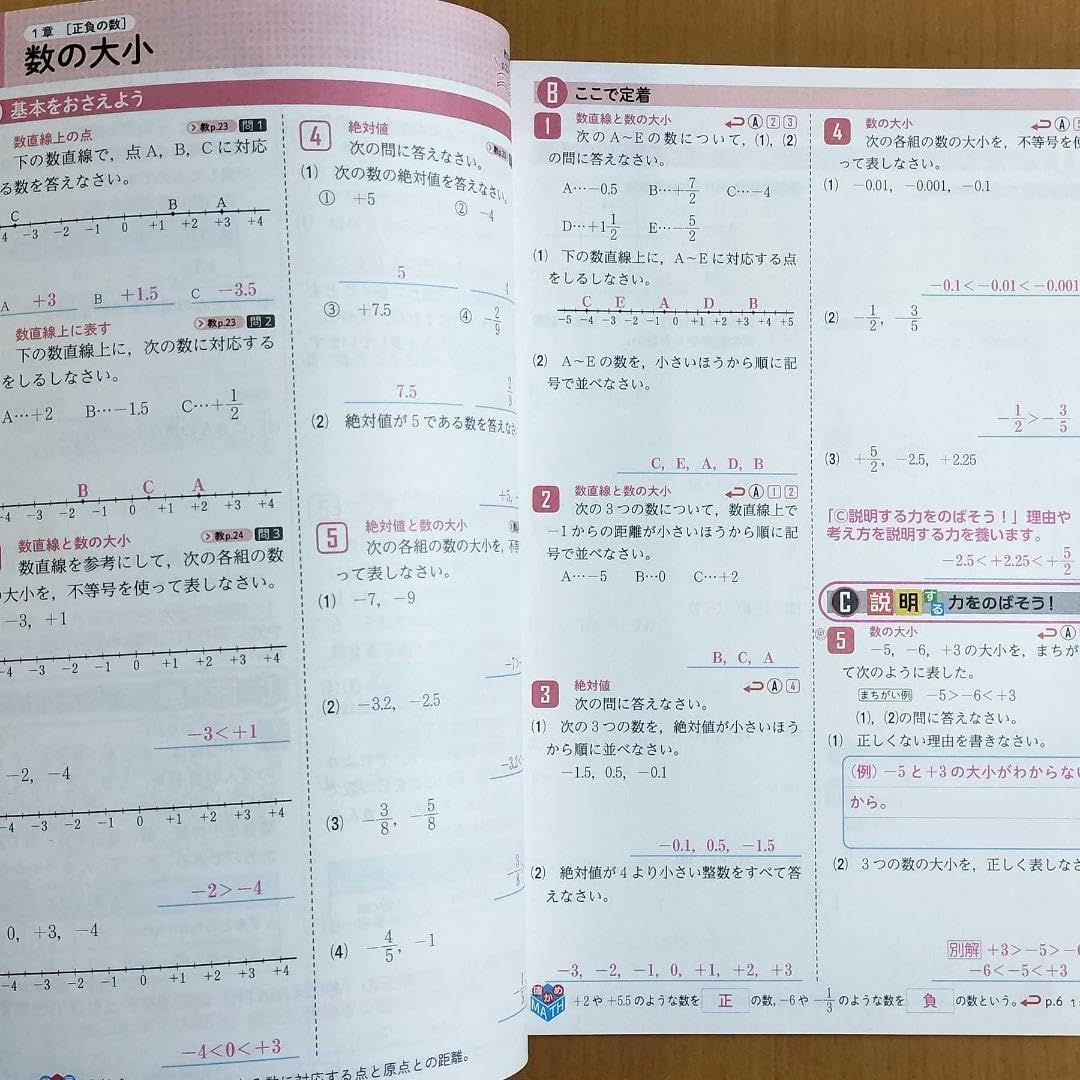 1章 [正負の数]
数の大小
基本をおさえよう
数直線上の点
教p.23 問1
下の数直線で，点A，B，Cに対応
る数を答えなさい。
C B A
4 −3 −2 −1 0 +1 +2 +3 +4
A +3 B +1.5 C −3.5
数直線上に表す
教p.23 問2
下の数直線上に，次の数に対応する
をしるしなさい。
A…+2 B…−1.5 C…+1/2
B C A
−4 −3 −2 −1 0 +1 +2 +3 +4
数直線と数の大小
教p.24 問3
数直線を参考にして，次の各組の数
大小を，不等号を使って表しなさい。
−3，+1
−4 −3 −2 −1 0 +1 +2 +3 +4
−3＜+1
−2，−4
−4 −3 −2 −1 0 +1 +2 +3 +4
−2＞−4
0，+3，−4
−4 −3 −2 −1 0 +1 +2 +3 +4
−4＜0＜+3
数に対応する点と原点との距離。
4 絶対値
次の問に答えなさい。
(1) 次の数の絶対値を答えなさい。
① +5 ② −4
5 4
③ +7.5 ④ −2/9
7.5 2/9
(2) 絶対値が5である数を答えなさ
+5，
5 絶対値と数の大小
次の各組の数の大小を，不等
って表しなさい。
(1) −7，−9
−7
(2) −3.2，−2.5
−3.2
(3) −3/8，−5/8
(4) −4/5，−1
B ここで定着
1 数直線と数の大小
A 2 3
次のA～Eの数について，(1)，(2)
の問に答えなさい。
A…−0.5 B…+7/2 C…−4
D…+1 1/2 E…−5/2
(1) 下の数直線上に，A～Eに対応する点
をしるしなさい。
C E A D B
−5 −4 −3 −2 −1 0 +1 +2 +3 +4 +5
(2) A～Eの数を，小さいほうから順に記
号で並べなさい。
C，E，A，D，B
2 数直線と数の大小
A 1 2
次の3つの数について，数直線上で
−1からの距離が小さいほうから順に記
号で並べなさい。
A…−5 B…0 C…+2
B，C，A
3 絶対値
A 4
次の問に答えなさい。
(1) 次の3つの数を，絶対値が小さいほう
から順に並べなさい。
−1.5，0.5，−0.1
−0.1，0.5，−1.5
(2) 絶対値が4より小さい整数をすべて答
えなさい。
−3，−2，−1，0，+1，+2，+3
4 数の大小
A
次の各組の数の大小を，不等号を使
って表しなさい。
(1) −0.01，−0.001，−0.1
−0.1＜−0.01＜−0.001
(2) −1/2，−3/5
−1/2＞−3/5
(3) +5/2，−2.5，+2.25
「C説明する力をのばそう！」理由や
考え方を説明する力を養います。
−2.5＜+2.25＜+5/2
C 説明する力をのばそう！
5 数の大小
A
−5，−6，+3の大小を，まちが
て次のように表した。
まちがい例 −5＞−6＜+3
(1)，(2)の問に答えなさい。
(1) 正しくない理由を書きなさい。
(例) −5と+3の大小がわからない
から。
(2) 3つの数の大小を，正しく表しなさ
別解 +3＞−5＞−6
−6＜−5＜+3
確かめ MATH
+2や+5.5のような数を 正 の数，−6や−1/3のような数を 負 の数という。 p.6